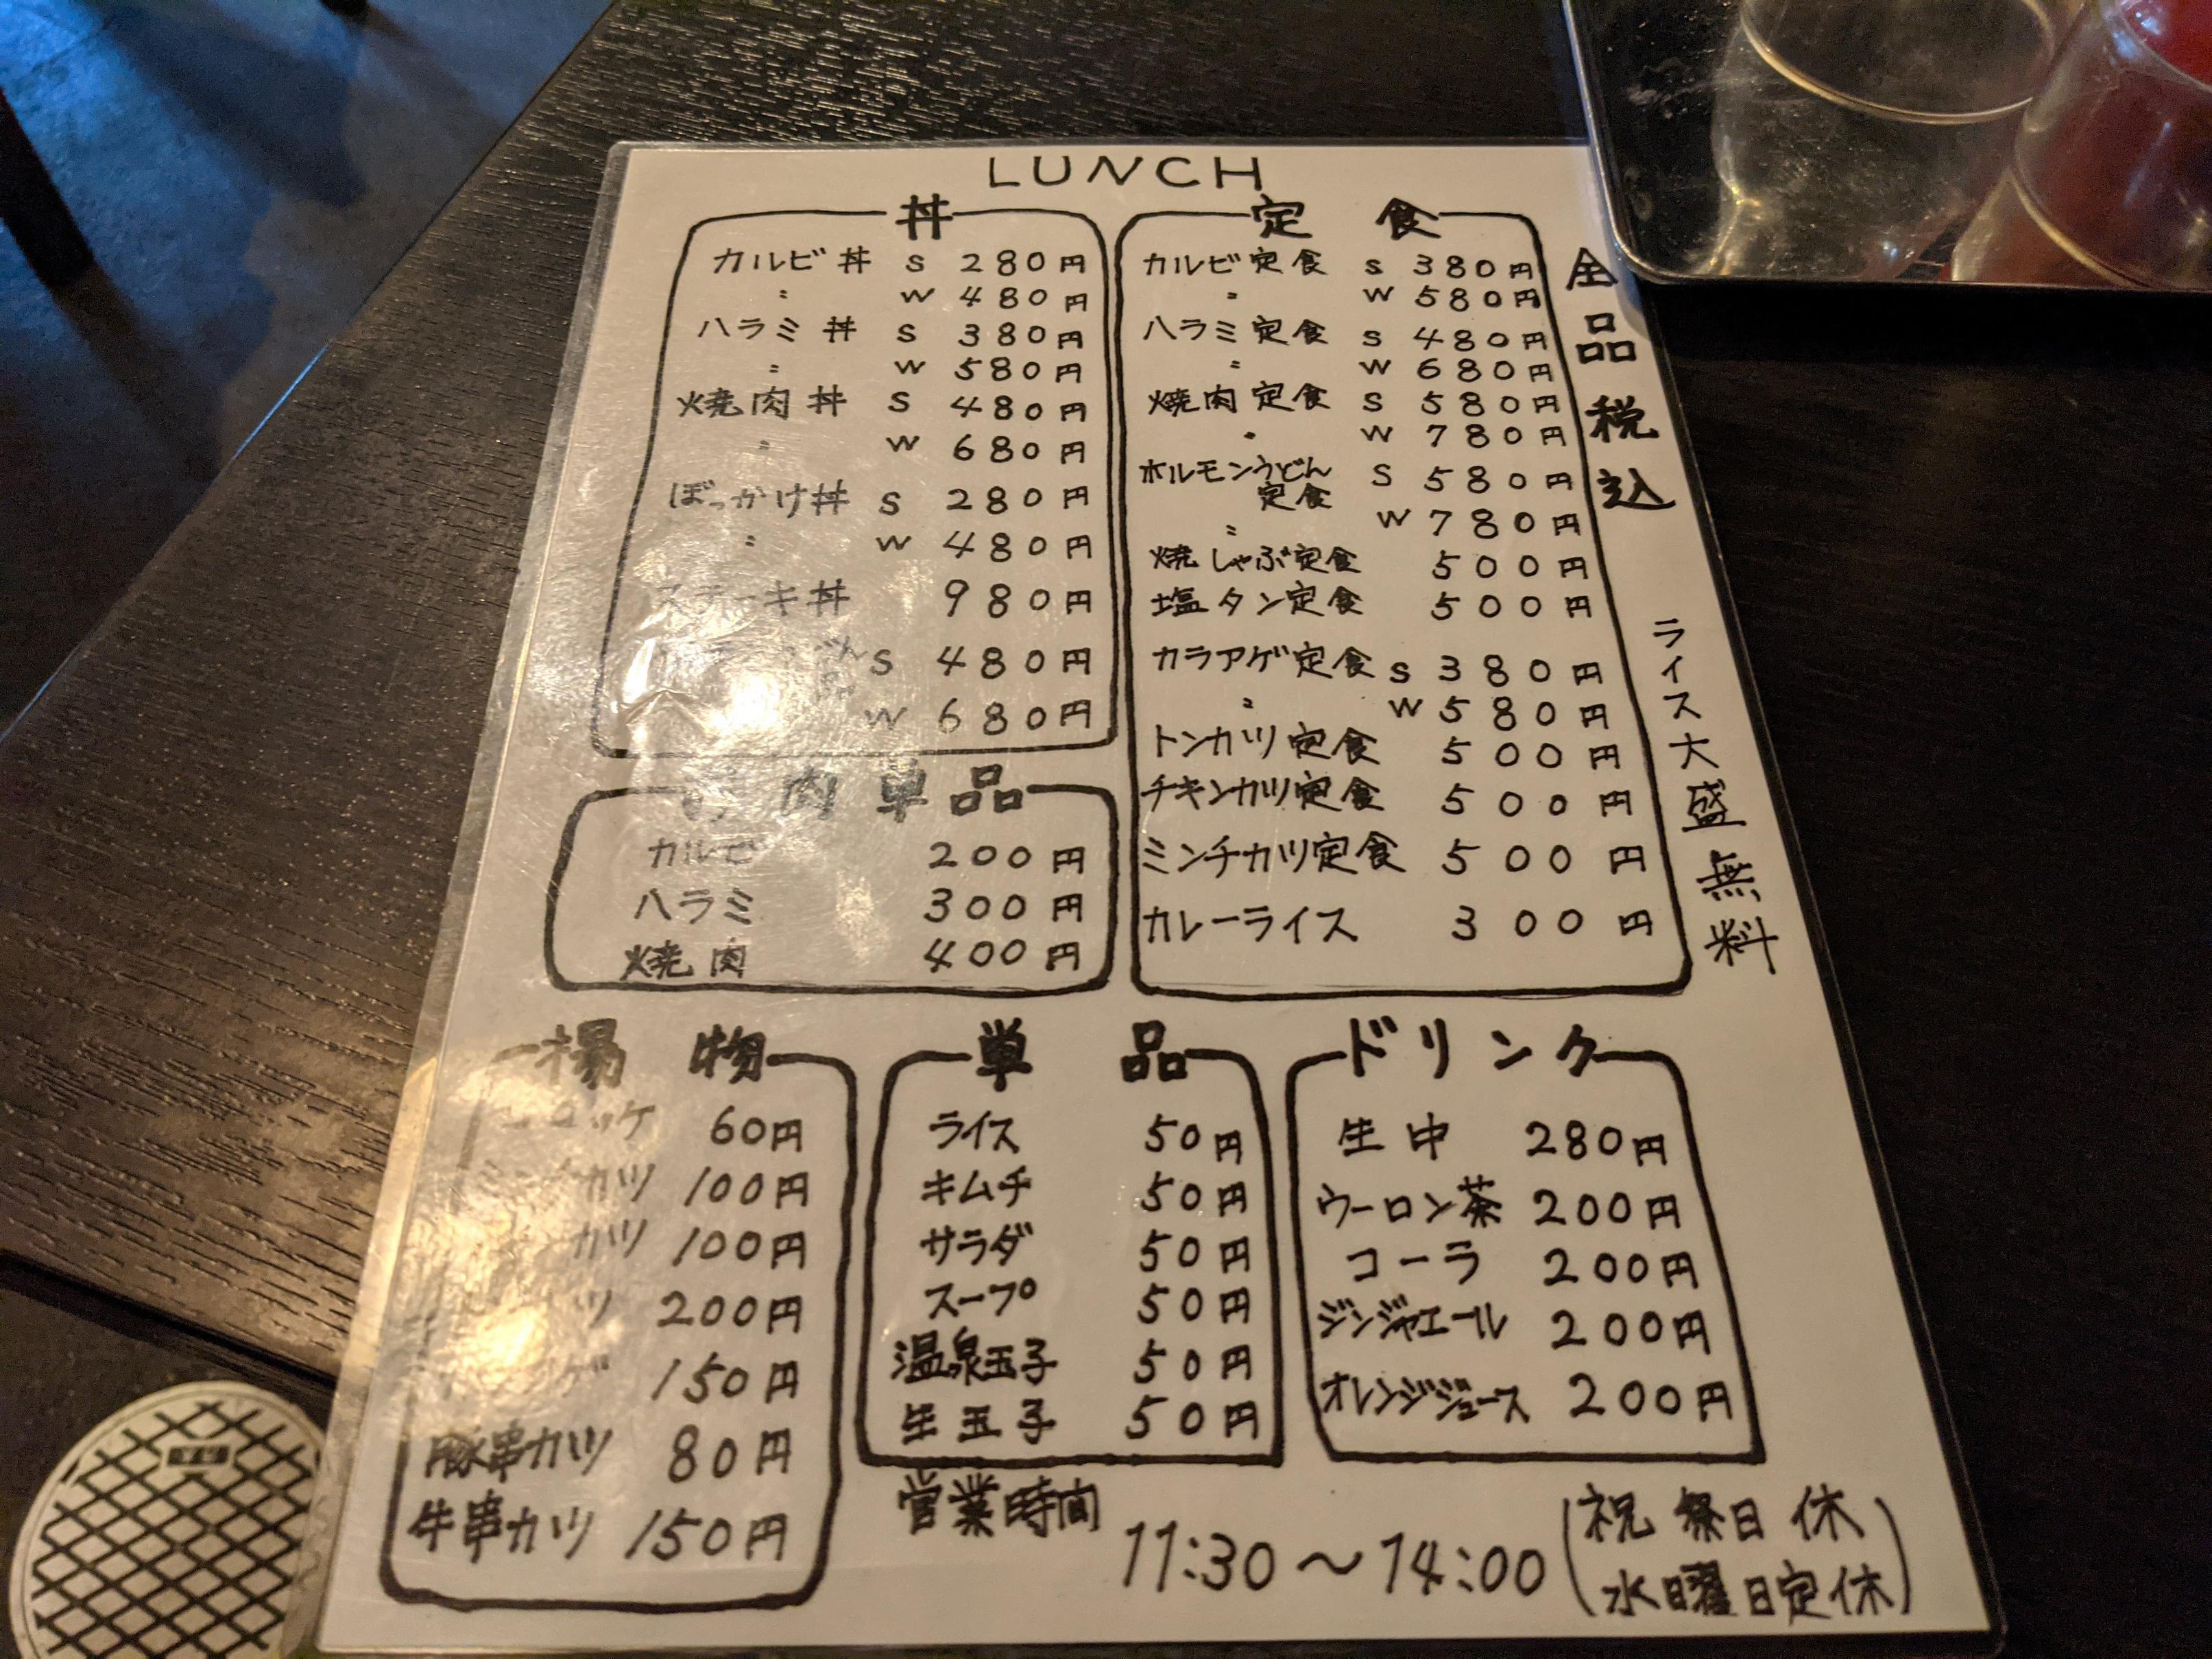 LUNCH
丼
カルビ丼 S 280円
〃 W 480円
ハラミ丼 S 380円
〃 W 580円
焼肉丼 S 480円
〃 W 680円
ぼっかけ丼 S 280円
〃 W 480円
ステーキ丼 980円
S 480円
W 680円
肉単品
カルビ 200円
ハラミ 300円
焼肉 400円
定食
カルビ定食 S 380円
〃 W 580円
ハラミ定食 S 480円
〃 W 680円
焼肉定食 S 580円
〃 W 780円
ホルモンうどん
定食 S 580円
〃 W 780円
焼しゃぶ定食 500円
塩タン定食 500円
カラアゲ定食 S 380円
〃 W 580円
トンカツ定食 500円
チキンカツ定食 500円
ミンチカツ定食 500円
カレーライス 300円
全品税込
ライス大盛無料
揚物
コロッケ 60円
ミンチカツ 100円
カツ 100円
200円
150円
豚串カツ 80円
牛串カツ 150円
単品
ライス 50円
キムチ 50円
サラダ 50円
スープ 50円
温泉玉子 50円
生玉子 50円
ドリンク
生中 280円
ウーロン茶 200円
コーラ 200円
ジンジャエール 200円
オレンジジュース 200円
営業時間
11:30〜14:00
(祝祭日休
水曜日定休)